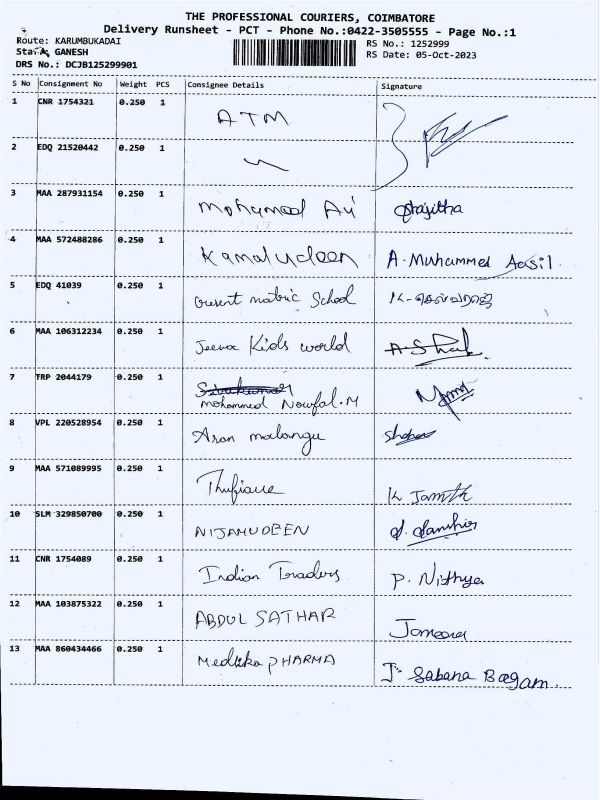 THE PROFESSIONAL COURIERS, COIMBATORE
Delivery Runsheet - PCT - Phone No.:0422-3505555 - Page No.:1
Route: KARUMBUKADAI
GANESH
DRS No.: DCJB125299901
RS No.: 1252999
RS Date: 05-Oct-2023
S No Consignment No Weight PCS Consignee Details Signature
1 CNR 1754321 0.250 1 ATM
2 EDQ 21520442 0.250 1
3 MAA 287931154 0.250 1 Mohamed Ali
4 MAA 572488286 0.250 1 Kamaludeen A. Muhammed Aasil.
5 EDQ 41039 0.250 1 Cresent matric School K. செல்வராஜ்
6 MAA 106312234 0.250 1 Jeeva Kids world
7 TRP 2044179 0.250 1 Sivakumar
Mohammed Nowfal.M
8 VPL 220528954 0.250 1
9 MAA 571089995 0.250 1
10 SLM 329850700 0.250 1 NIJAMUDEEN
11 CNR 1754089 0.250 1 Indian Traders P. Nithya
12 MAA 103875322 0.250 1 ABDUL SATHAR
13 MAA 860434466 0.250 1 PHARMA J. Sabana Begam.